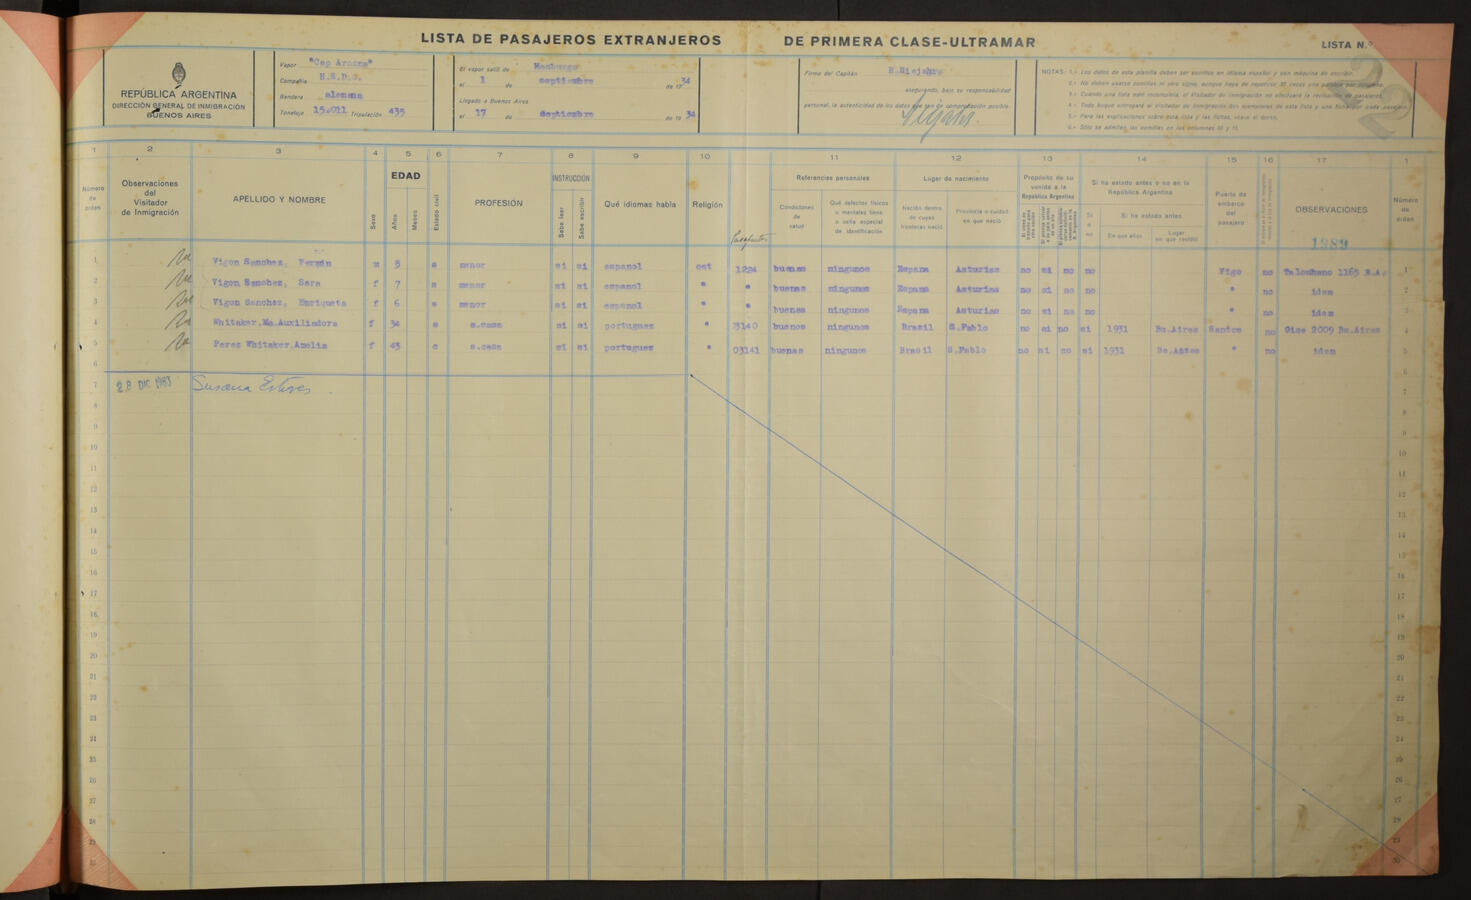 LISTA DE PASAJEROS EXTRANJEROS DE PRIMERA CLASE-ULTRAMAR
LISTA N.°
22
REPÚBLICA ARGENTINA
DIRECCIÓN GENERAL DE INMIGRACIÓN
BUENOS AIRES
Vapor "Cap Arcona"
Compañía H.S.D.G.
Bandera alemana
Tonelaje 15.011 Tripulación 435
El vapor salió de Hamburgo
el 1 de septiembre de 1934
Llegado a Buenos Aires
el 17 de septiembre de 1934
Firma del Capitán
asegurando, bajo su responsabilidad
personal, la autenticidad de los datos que son de comprobación posible.
NOTAS: 1.- Los datos de esta planilla deben ser escritos en idioma español y con máquina de escribir.
3.- Cuando una lista esté incompleta, el Visitador de Inmigración no efectuará la revisación de pasajeros.
5.- Para las explicaciones sobre esta lista y las fichas, véase el dorso.
6.- Sólo se admiten las comillas en las columnas 10 y 11.
1 2 3 4 5 6 7 8 9 10 11 12 13 14 15 16 17 1
Número de orden
Observaciones del Visitador de Inmigración
APELLIDO Y NOMBRE
Sexo
EDAD
Años
Meses
Estado civil
PROFESIÓN
INSTRUCCIÓN
Sabe leer
Sabe escribir
Qué idiomas habla
Religión
Pasaporte
Referencias personales
Condiciones de salud
Qué defectos físicos o mentales tiene o seña especial de identificación
Lugar de nacimiento
Nación dentro de cuyas fronteras nació
Provincia o ciudad en que nació
Propósito de su venida a la República Argentina
Si ha estado antes o no en la República Argentina
Si o no
Si ha estado antes
En que años
Lugar en que residió
Puerto de embarco del pasajero
OBSERVACIONES
1989
Número de orden
1 Vigon Sanchez, Fermin m 5 s menor si si espanol cat 1224 buenas ningunos Espana Asturias no si no no Vigo no Talcahano 1165 B.A. 1
2 Vigon Sanchez, Sara f 7 s menor si si espanol " " buenas ningunos Espana Asturias no si no no " no idem 2
3 Vigon Sanchez, Enriqueta f 6 s menor si si espanol " " buenas ningunos Espana Asturias no si no no no idem 3
4 Whitaker, Ma.Auxiliadora f 34 s s.casa si si portuguez " 73140 buenos ningunos Brazil S.Pablo no si no si 1931 Bs.Aires Santos no Gise 2009 Bs.Aires 4
5 Perez Whitaker, Amelia f 43 c s.casa si si portuguez " 03141 buenas ningunos Brasil S.Pablo no si no si 1931 " no idem 5
6 6
7 28 DIC 1983 Susana Esteves 7
8 8
9 9
10 10
11 11
12 12
13 13
14 14
15 15
16 16
17 17
18 18
19 19
20 20
21 21
22 22
23 23
24 24
25 25
26 26
27 27
28 28
29 29
30 30